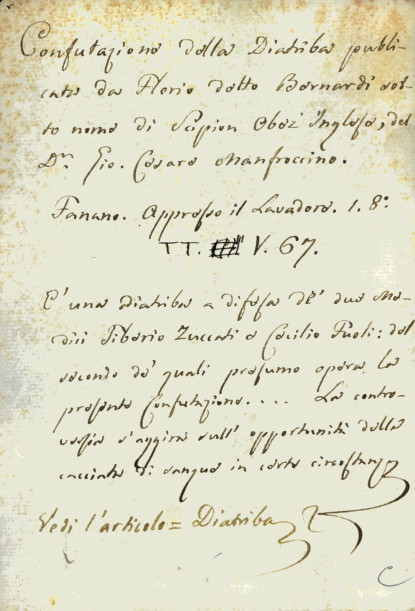 Confutazione della Diatriba publi-
cata da Flerio detto Bernardi sot-
to nome di Scipion Obez Inglese, del
D.r Gio. Cesare Manfroccino.
Fanano. Appresso il Lavadore. 1. 8.o
TT. V. 67.
E' una diatriba a difesa de' due Me-
dici Tiberio Zuccati e Cecilio Fuoli: del
secondo de' quali presumo opera la
presente Confutazione.... La contro-
versia s'aggira sull' opportunità della
cacciata di sangue in certe circostanze
Vedi l'articolo = Diatriba
C